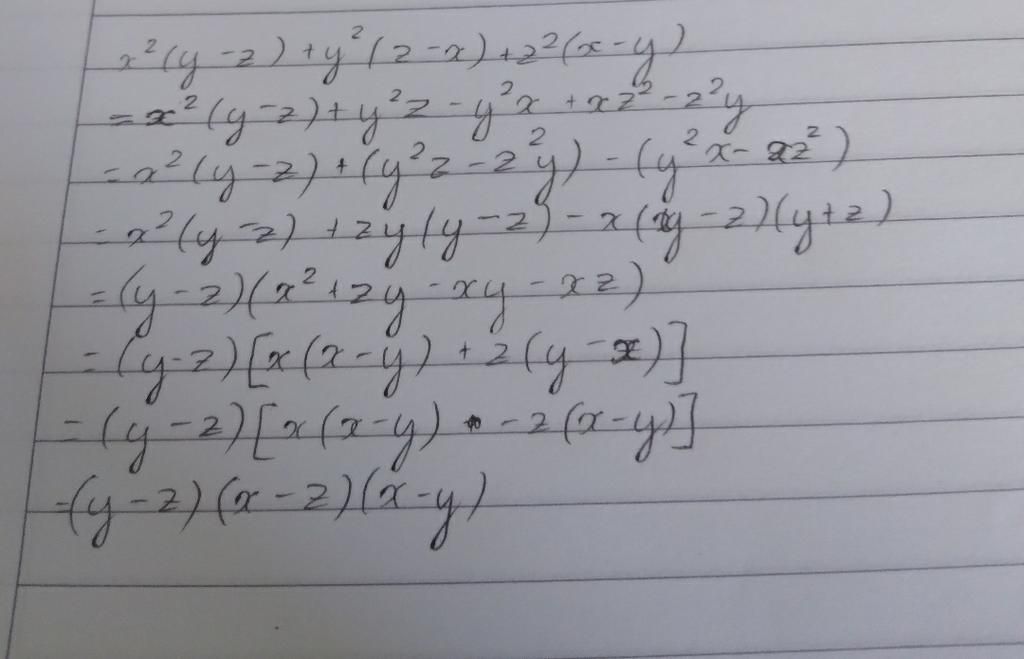 x²(y-z)+y²(z-x)+z²(x-y)
=x²(y-z)+y²z-y²x+xz²-z²y
=x²(y-z)+(y²z-z²y)-(y²x-xz²)
=x²(y-z)+zy(y-z)-x(y-z)(y+z)
=(y-z)(x²+zy-xy-xz)
=(y-z)[x(x-y)+z(y-x)]
=(y-z)[x(x-y)-z(x-y)]
=(y-z)(x-z)(x-y)